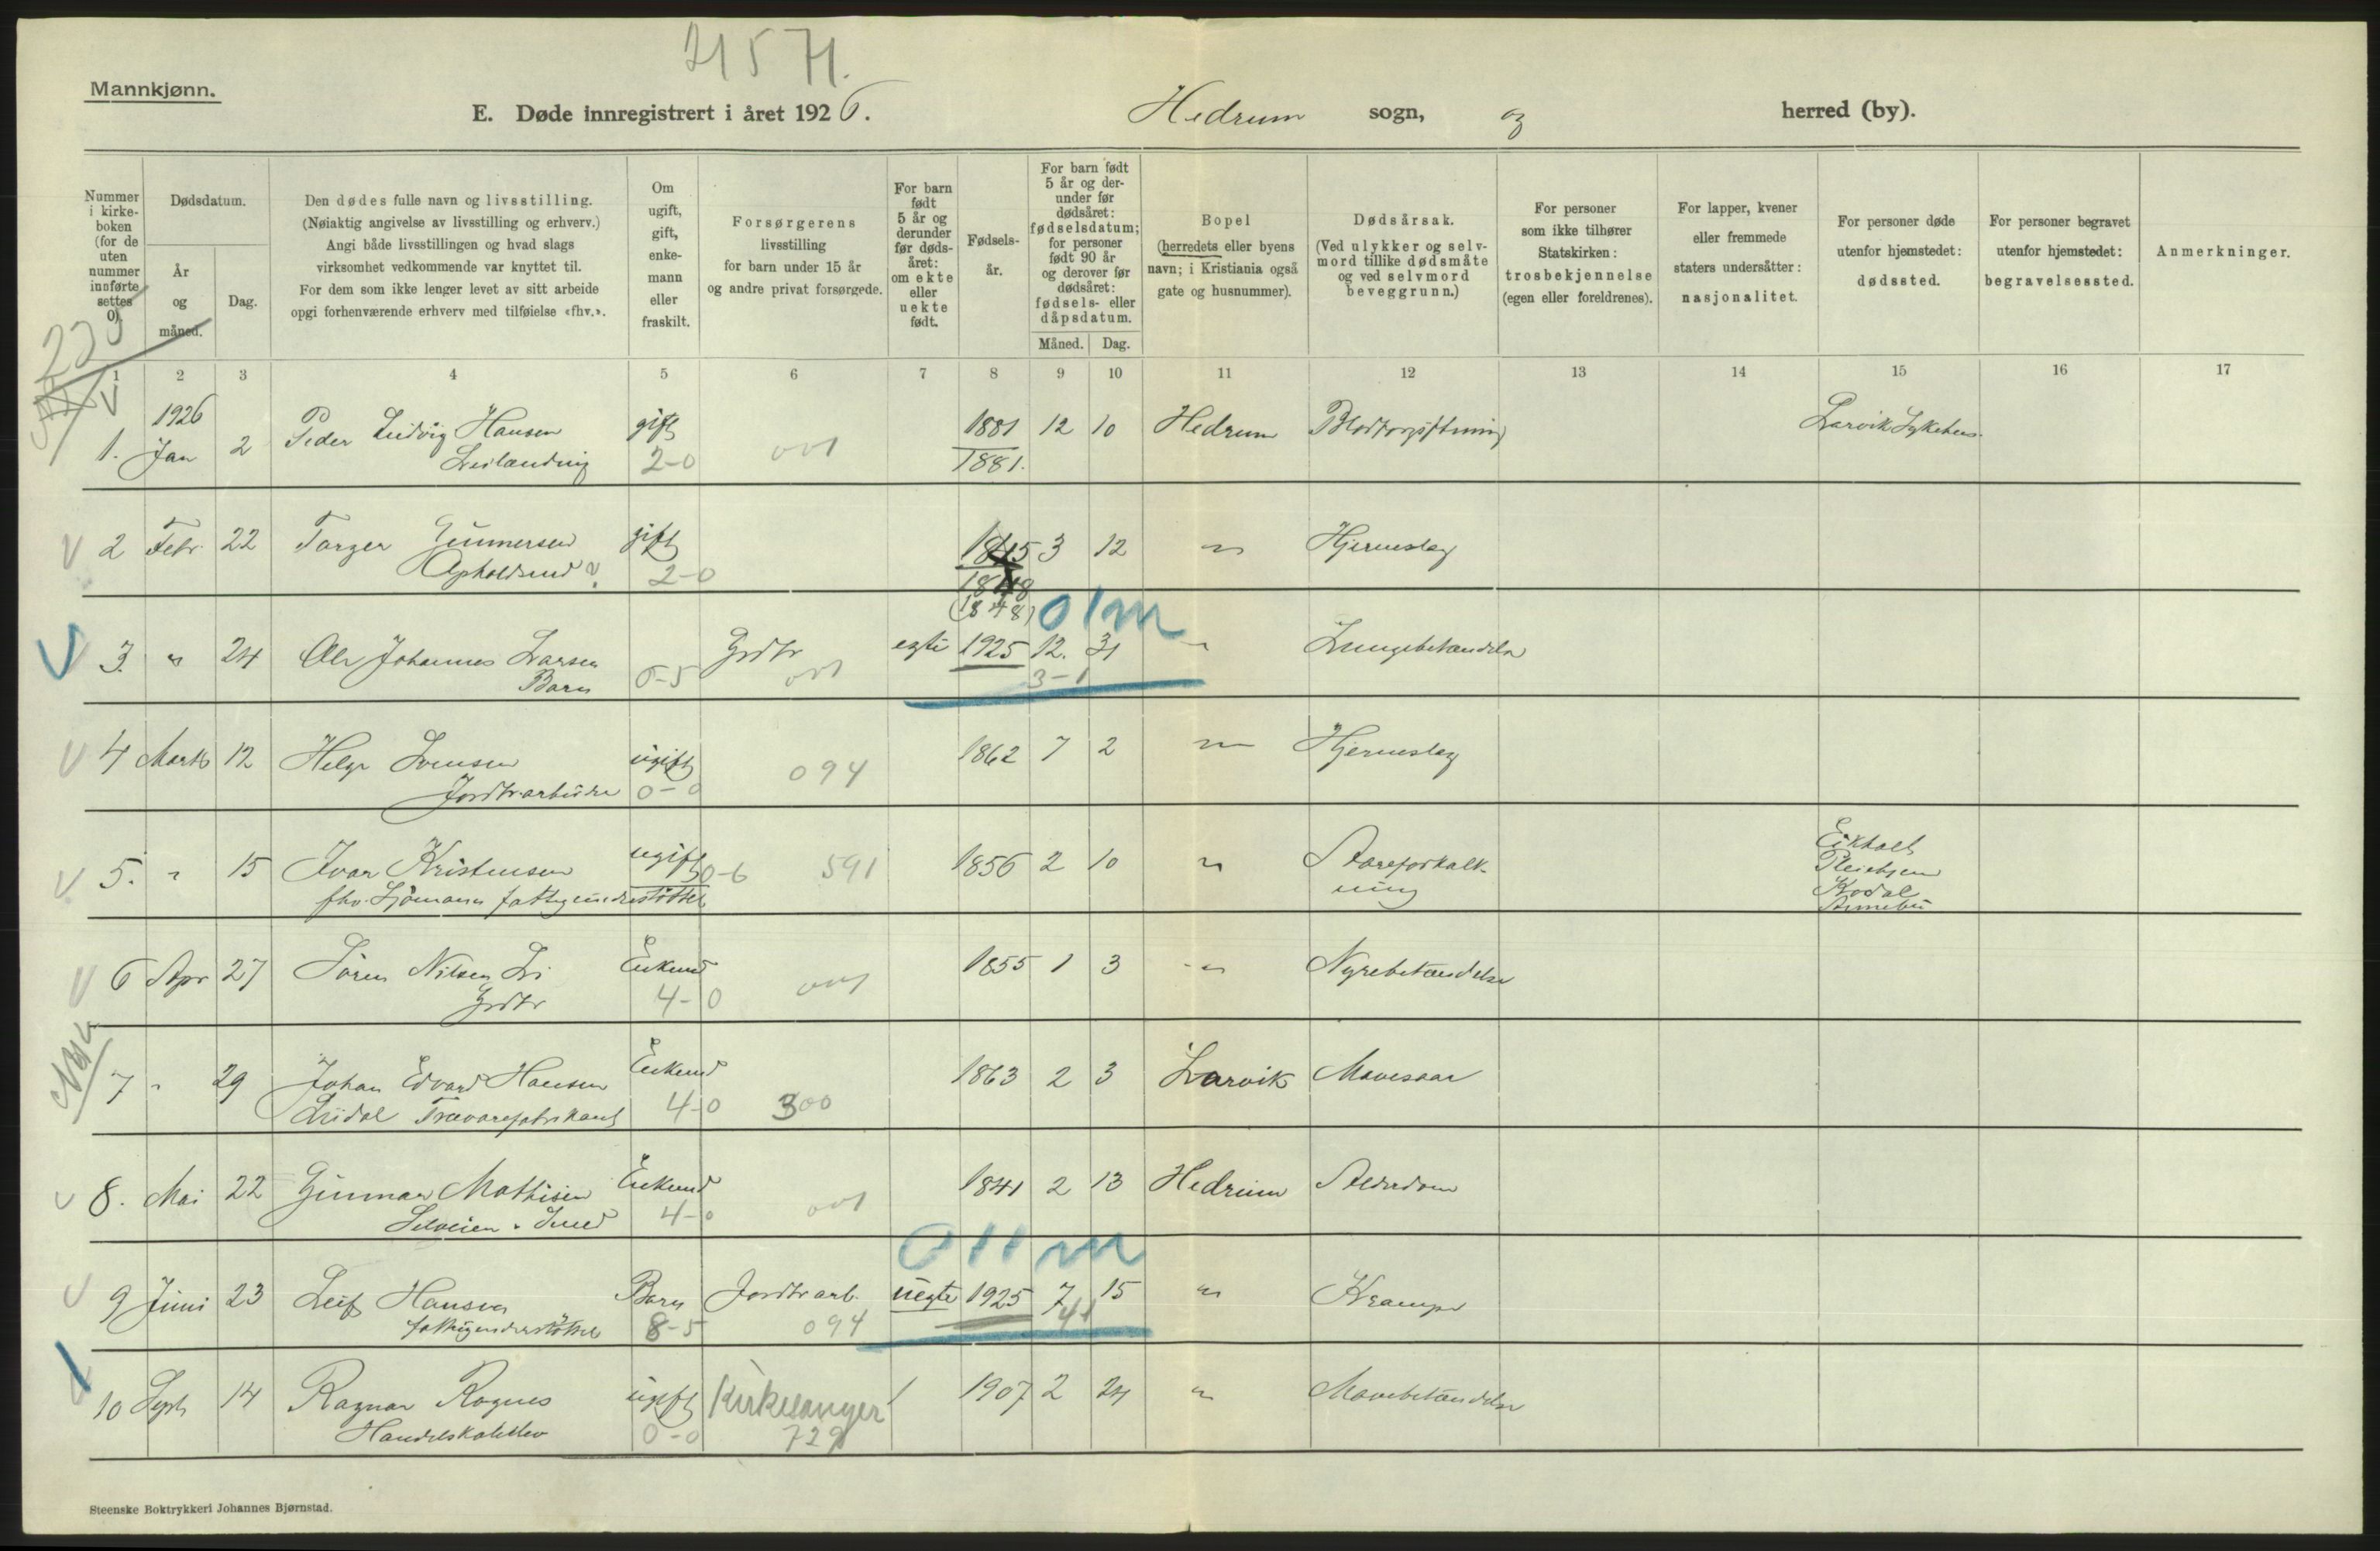 21571.
Mannkjønn.
E. Døde innregistrert i året 1926. Hedrum sogn, og herred (by).
Nummer i kirke-boken (for de uten nummer innførte settes 0).
Dødsdatum.
År og måned.
Dag.
Den dødes fulle navn og livsstilling.
(Nøiaktig angivelse av livsstilling og erhverv.)
Angi både livsstillingen og hvad slags
virksomhet vedkommende var knyttet til.
For dem som ikke lenger levet av sitt arbeide
opgi forhenværende erhverv med tilføielse «fhv.».
Om ugift, gift, enke-mann eller fraskilt.
Forsørgerens
livsstilling
for barn under 15 år
og andre privat forsørgede.
For barn født 5 år og derunder før døds-året: om ekte eller uekte født.
Fødsels-år.
For barn født 5 år og der-under før dødsåret: fødselsdatum; for personer født 90 år og derover før dødsåret: fødsels- eller dåpsdatum.
Måned. Dag.
Bopel
(herredets eller byens
navn; i Kristiania også
gate og husnummer).
Dødsårsak.
(Ved ulykker og selv-
mord tillike dødsmåte
og ved selvmord
beveggrunn.)
For personer
som ikke tilhører
Statskirken:
trosbekjennelse
(egen eller foreldrenes).
For lapper, kvener
eller fremmede
staters undersåtter:
nasjonalitet.
For personer døde
utenfor hjemstedet:
dødssted.
For personer begravet
utenfor hjemstedet:
begravelsessted.
Anmerkninger.
1 2 3 4 5 6 7 8 9 10 11 12 13 14 15 16 17
1926
1. Jan 2 Peder Ludvig Hansen gift 1881 12 10 Hedrum Blodforgiftning Larvik Sykehus.
2-0 001 1881.
2 Febr. 22 Torger Gunnersen gift 1845 3 12 " Hjerneslag
2-0 1848
(1848) 01m
3. " 24 Ole Johannes Larsen Grdbr egte 1925 12. 31 " Lungebetændelse
Barn 6-5 001 3-1
4 Marts 12 Helge Svensen ugift 1862 7 2 " Hjerneslag
Jordbr.arbeider 0-0 094
5. " 15 Ivar Kristensen ugift 0-6 591 1856 2 10 " Aareforkalk-
ning Eikholt
Pleiehjem
Kodal
Annebu
fhv. Sjømann fattigunderstøttet
6 Apr 27 Søren Nilsen Li Enkem 1855 1 3 " Nyrebetændelse
Grdbr 4-0 001
7 " 29 Johan Edvard Hansen Enkem 1863 2 3 Larvik Mavesaar
Trævarefabrikant 4-0 300
8. Mai 22 Gunnar Mathisen Enkem 1841 2 13 Hedrum Alderdom
4-0 001
011m
9 Juni 23 Leif Hansen Barn Jordbr arb. uegte 1925 7 15 " Krampe
fattigunderstøttet 8-5 094 41
10 Sept 14 Ragnar Rognes ugift Kirkesanger 1 1907 2 24 " Mavebetændelse
Handelskolelev 0-0 729
Steenske Boktrykkeri Johannes Bjørnstad.